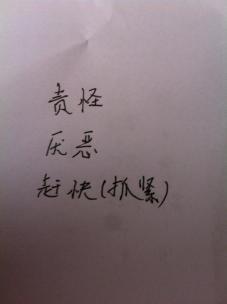 责怪
厌恶
赶快(抓紧)